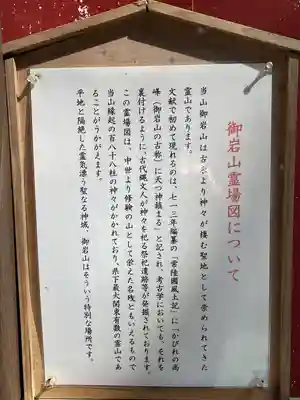 御岩山霊場図について
当山御岩山は古代より神々が棲む聖地として崇められてきた
霊山であります。
文献で初めて現れるのは、七一三年編纂の「常陸國風土記」に「かびれの高
峰（御岩山の古称）に天つ神鎮まる」と記され、考古学においても、それを
裏付けるように、古代縄文人が神々を祀る祭祀遺跡等が発掘されております。
この霊場図は、中世より修験の山として栄えた名残ともいえるもので
当山縁起の百八十八柱の神々がかかれており、県下最大関東有数の霊山であ
ることがうかがえます。
平地と隔絶した霊気漂う聖なる神域、御岩山はそういう特別な場所です。